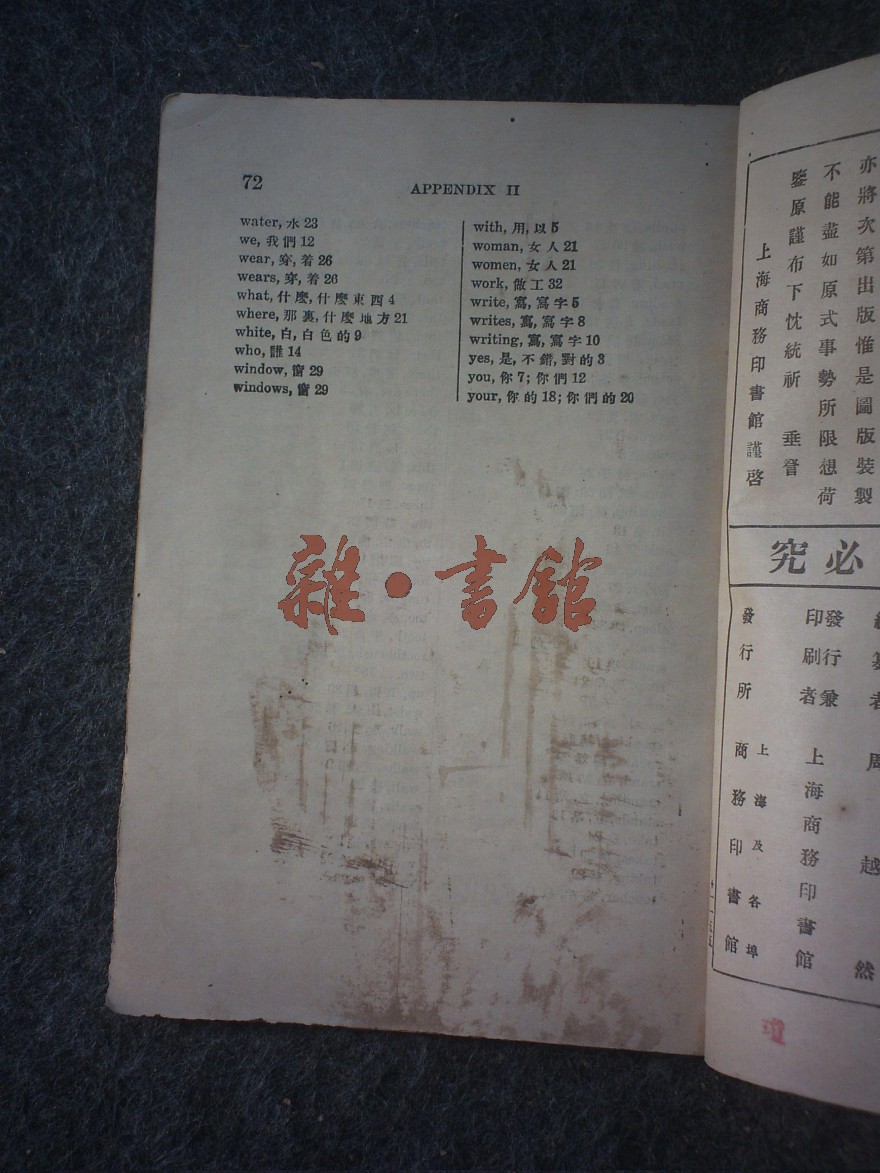 72
APPENDIX II
water, 水 23
we, 我們 12
wear, 穿, 着 26
wears, 穿, 着 26
what, 什麼, 什麼東西 4
where, 那裏, 什麼地方 21
white, 白, 白色的 9
who, 誰 14
window, 窗 29
windows, 窗 29
with, 用, 以 5
woman, 女人 21
women, 女人 21
work, 做工 32
write, 寫, 寫字 5
writes, 寫, 寫字 8
writing, 寫, 寫字 10
yes, 是, 不錯, 對的 3
you, 你 7; 你們 12
your, 你的 18; 你們的 20
雜·書館
亦將次第出版惟是圖版裝製
不能盡如原式事勢所限想荷
鑒原謹布下忱統祈 垂詧
上海商務印書館謹啓
必究
纂者 周越然
發行兼
印刷者 上海商務印書館
發行所 上海及各埠
商務印書館